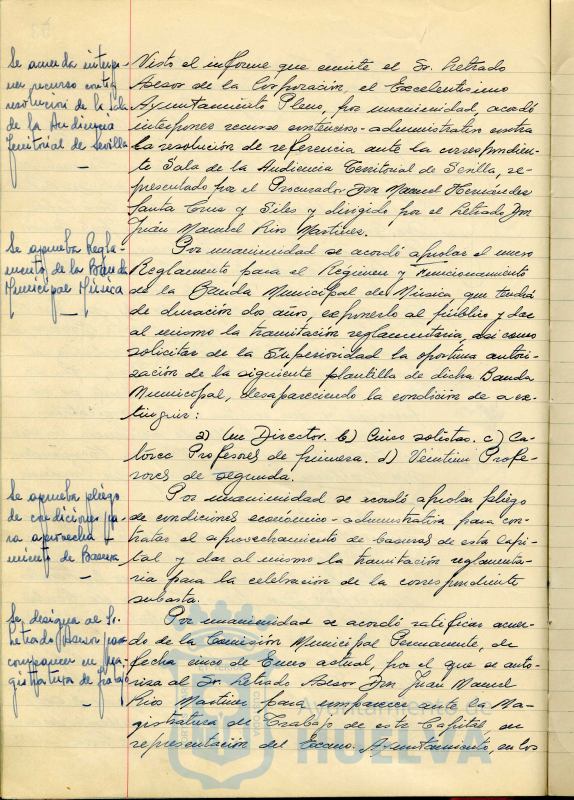 Se acuerda interpo-
ner recurso contra
resolución de la Sala
de la Audiencia
Territorial de Sevilla
Visto el informe que emite el Sr. Letrado
Asesor de la Corporación, el Excelentísimo
Ayuntamiento Pleno, por unanimidad, acordó
interponer recurso contencioso-administrativo contra
la resolución de referencia ante la correspondien-
te Sala de la Audiencia Territorial de Sevilla, re-
presentado por el Procurador Don Manuel Hernández
Santa Cruz y Siles y dirigido por el Letrado Don
Juan Manuel Rios Martinez.
Se aprueba Regla-
mento de la Banda
Municipal Música
Por unanimidad se acordó aprobar el nuevo
Reglamento para el Régimen y Funcionamiento
de la Banda Municipal de Música que tendrá
de duración dos años, exponerlo al público y dar
al mismo la tramitación reglamentaria, así como
solicitar de la Superioridad la oportuna autori-
zación de la siguiente plantilla de dicha Banda
Municipal, desapareciendo la condición de a ex-
tinguir:
a) Un Director. b) Cinco solistas. c) Ca-
torce Profesores de primera. d) Veintiun Profe-
sores de segunda.
Se aprueba pliego
de condiciones pa-
ra aprovecha-
miento de Basura
Por unanimidad se acordó aprobar pliego
de condiciones económico-administrativas para con-
tratar el aprovechamiento de basuras de esta Capi-
tal y dar al mismo la tramitación reglamenta-
ria para la celebración de la correspondiente
subasta.
Se designa al Sr.
Letrado Asesor para
comparecer en Ma-
gistratura de Trabajo
Por unanimidad se acordó ratificar acuer-
do de la Comisión Municipal Permanente, de
fecha cinco de Enero actual, por el que se auto-
riza al Sr. Letrado Asesor Don Juan Manuel
Rios Martinez para comparecer ante la Ma-
gistratura de Trabajo de esta Capital, en
representación del Excmo. Ayuntamiento, en los
Ayuntamiento de
HUELVA